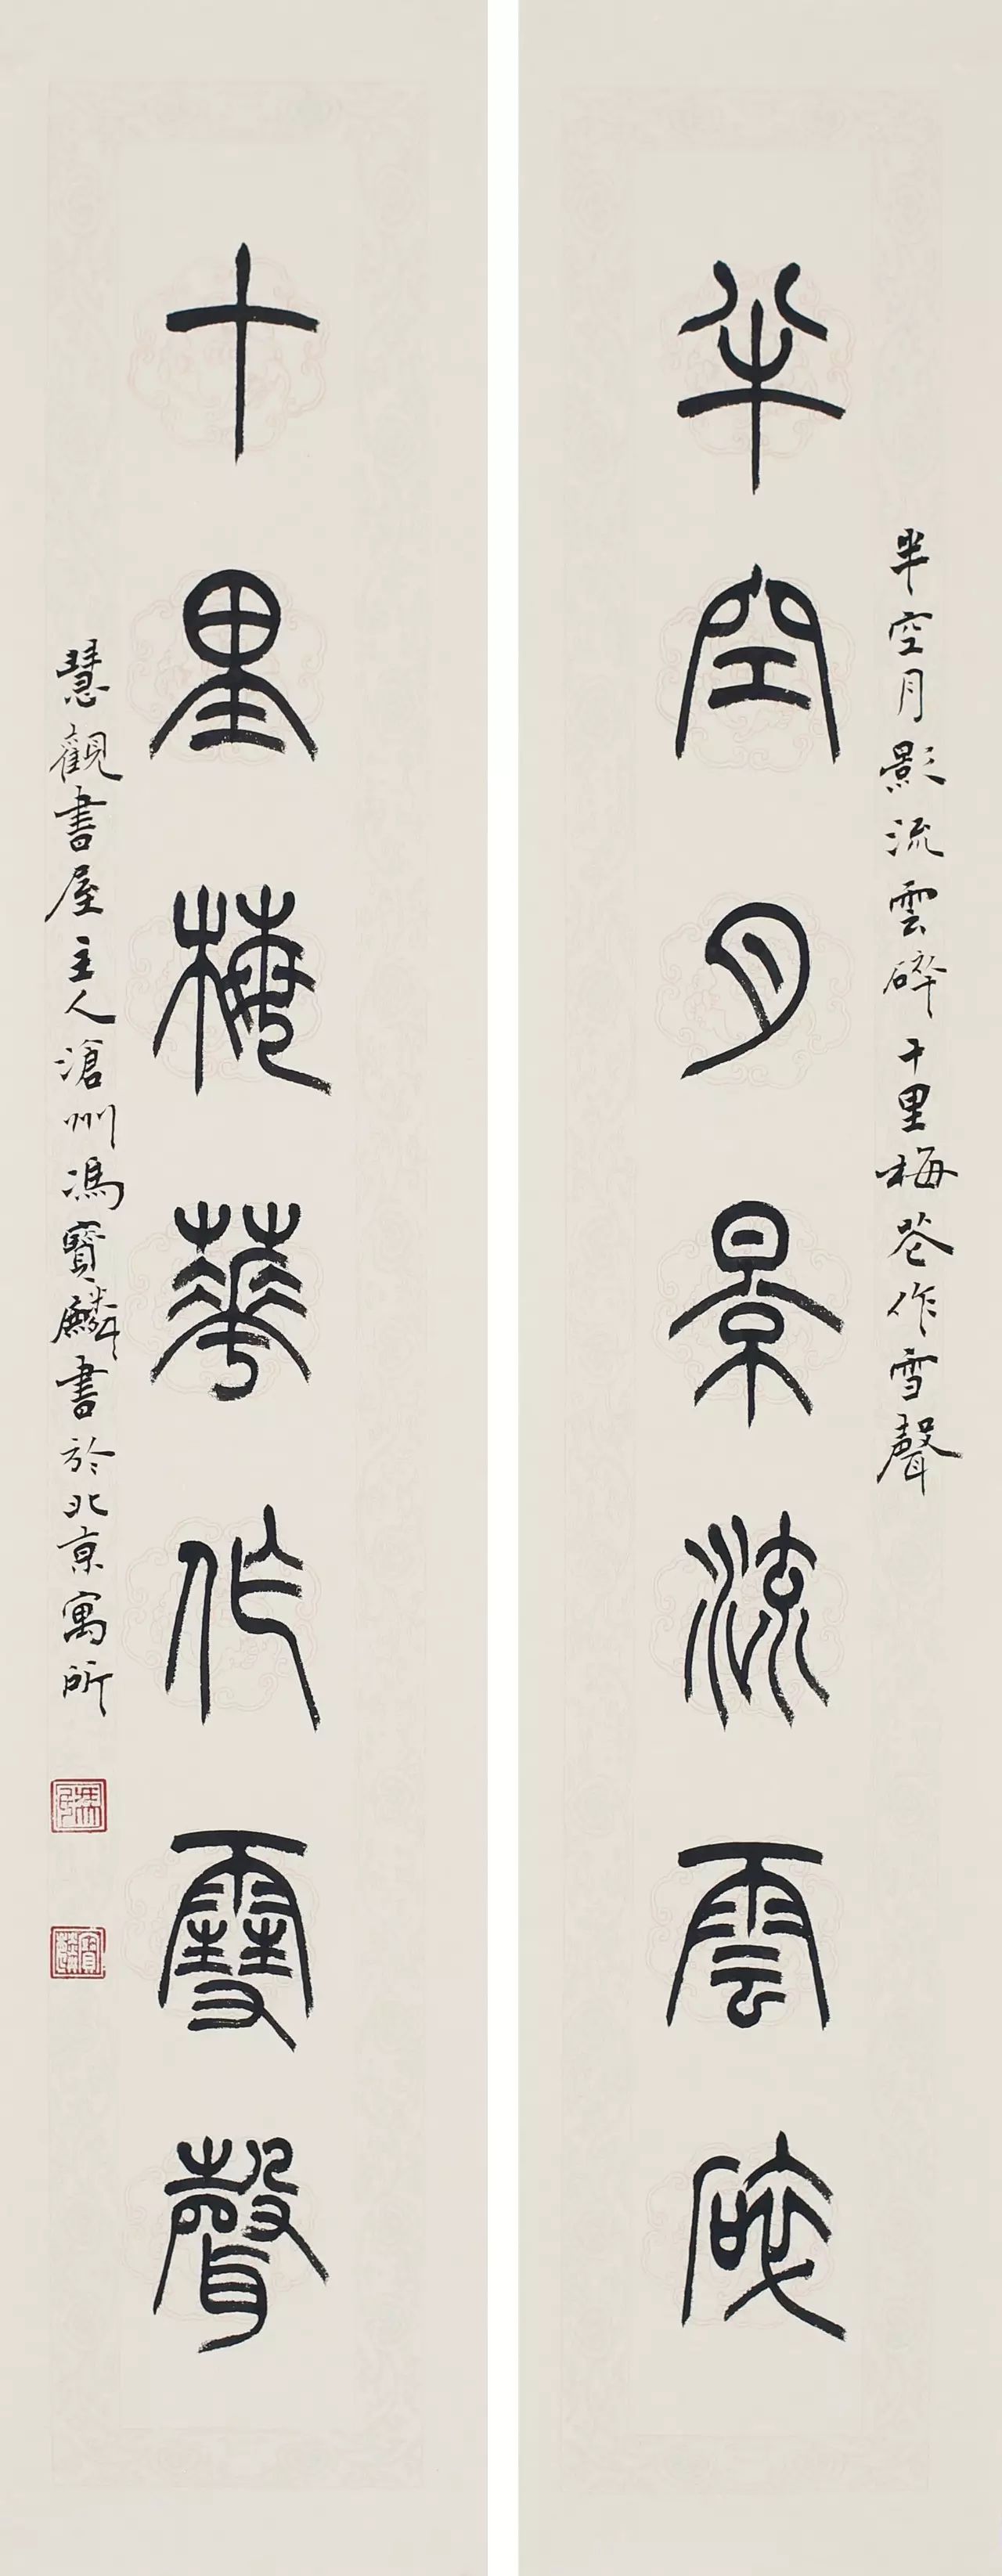 半空月影流雲碎十里梅花作雪聲
半空月景流雲碎
十里梅華作雪聲
慧觀書屋主人滄州馮寶麟書於北京寓所